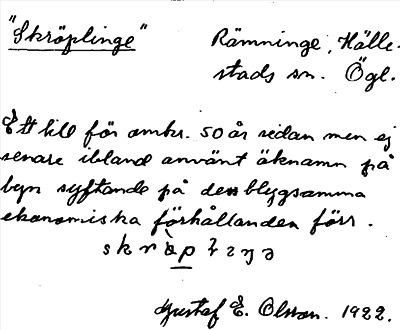 "Skröplinge"
Rämninge, Hälle-
stads sn. Ögl.
Ett till för omkr. 50 år sedan men ej
senare ibland använt öknamn på
byn syftande på dess blygsamma
ekonomiska förhållanden förr.
Gustaf E. Olsson. 1922.